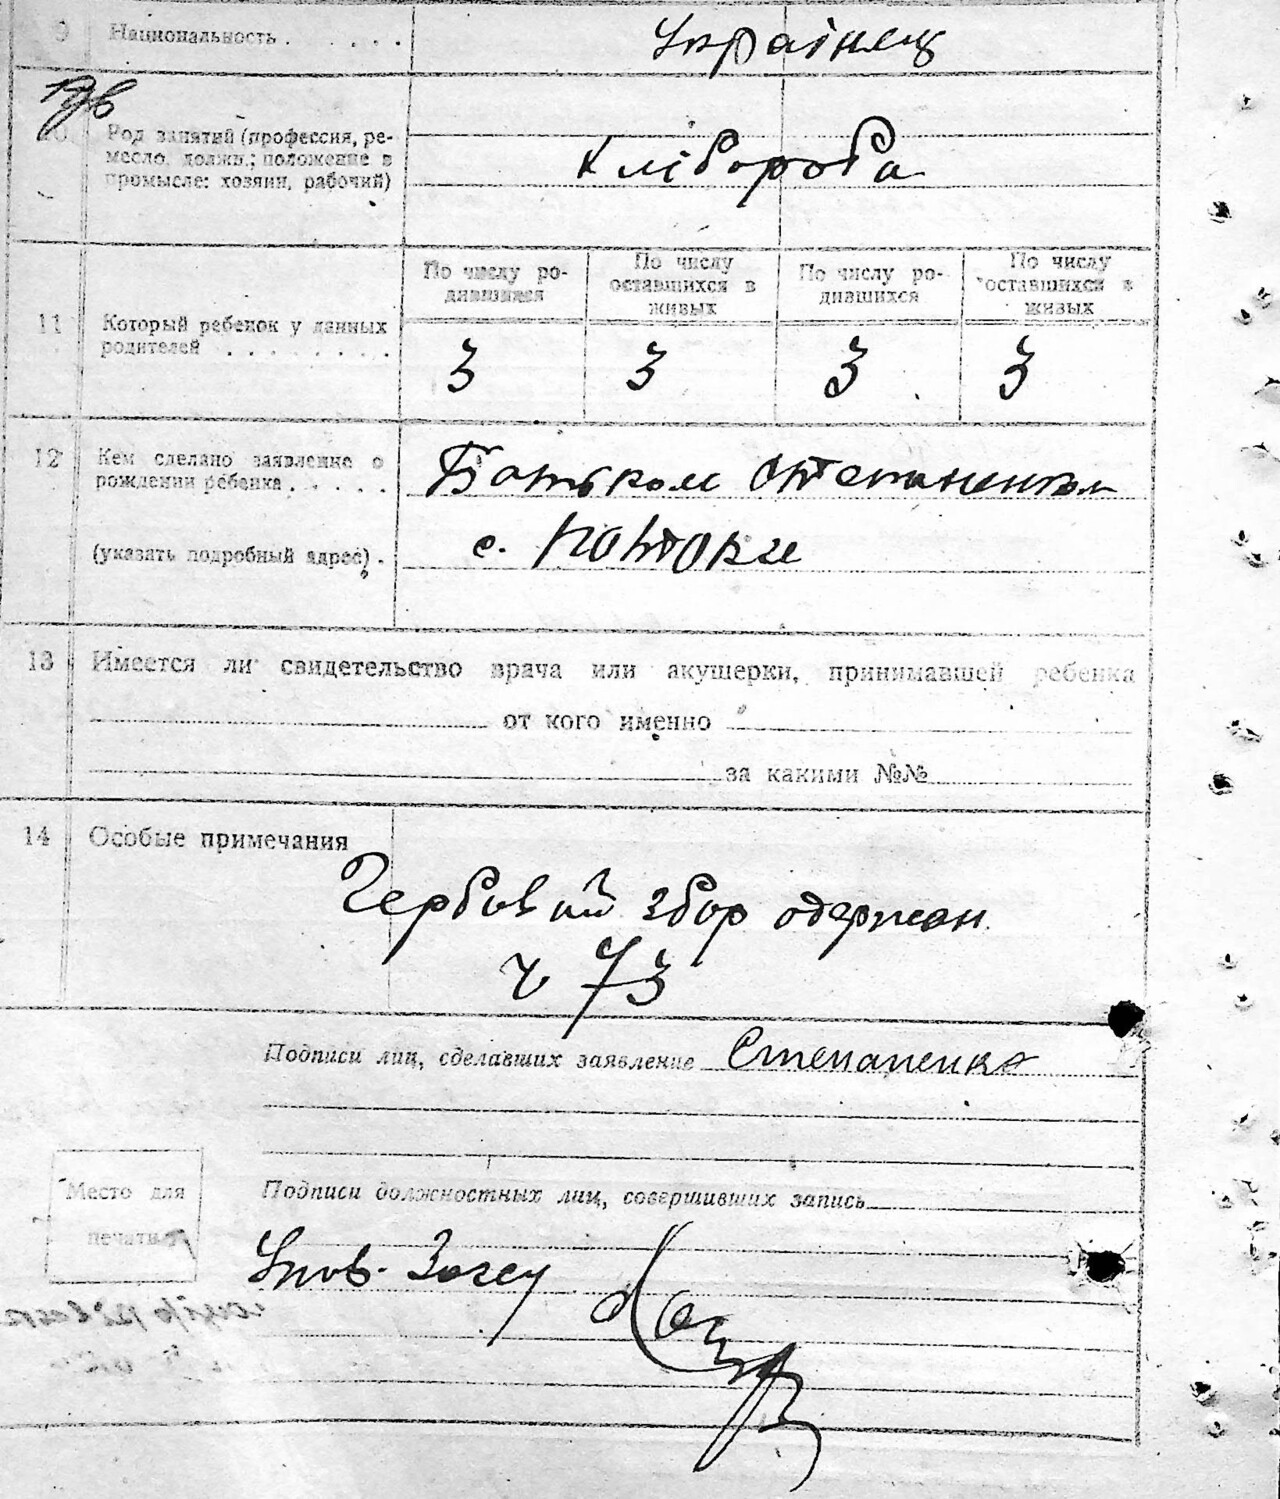 9 Национальность . . . . . Українец
10 Род занятий (профессия, ре-
месло, должн.; положение в
промысле: хозяин, рабочий)
Хлібороба
По числу ро-
дившихся
По числу
оставшихся в
живых
По числу ро-
дившихся
По числу
оставшихся в
живых
11 Который ребенок у данных
родителей . . . . . . . .
3 3 3 3
12 Кем сделано заявление о
рождении ребенка . . . . .
Батьком Степаненком
(указать подробный адрес) .
с.
13 Имеется ли свидетельство врача или акушерки, принимавшей ребенка
от кого именно
за какими №№
14 Особые примечания
Гербовий збор одержан
ч 73
Подписи лиц, сделавших заявление Степаненко
Место для
печати
Подписи должностных лиц, совершивших запись
Упов. Загсу